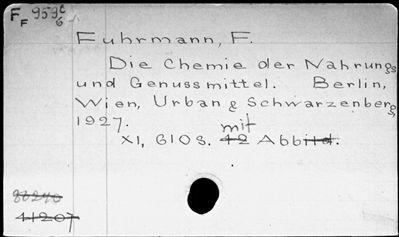 F_F 959c/6
Fuhrmann, F.
Die Chemie der Nahrungs
und Genussmittel. Berlin,
Wien, Urban & Schwarzenberg,
1927.
mit
XI, 610 S. 42 Abbild.
80240
41207